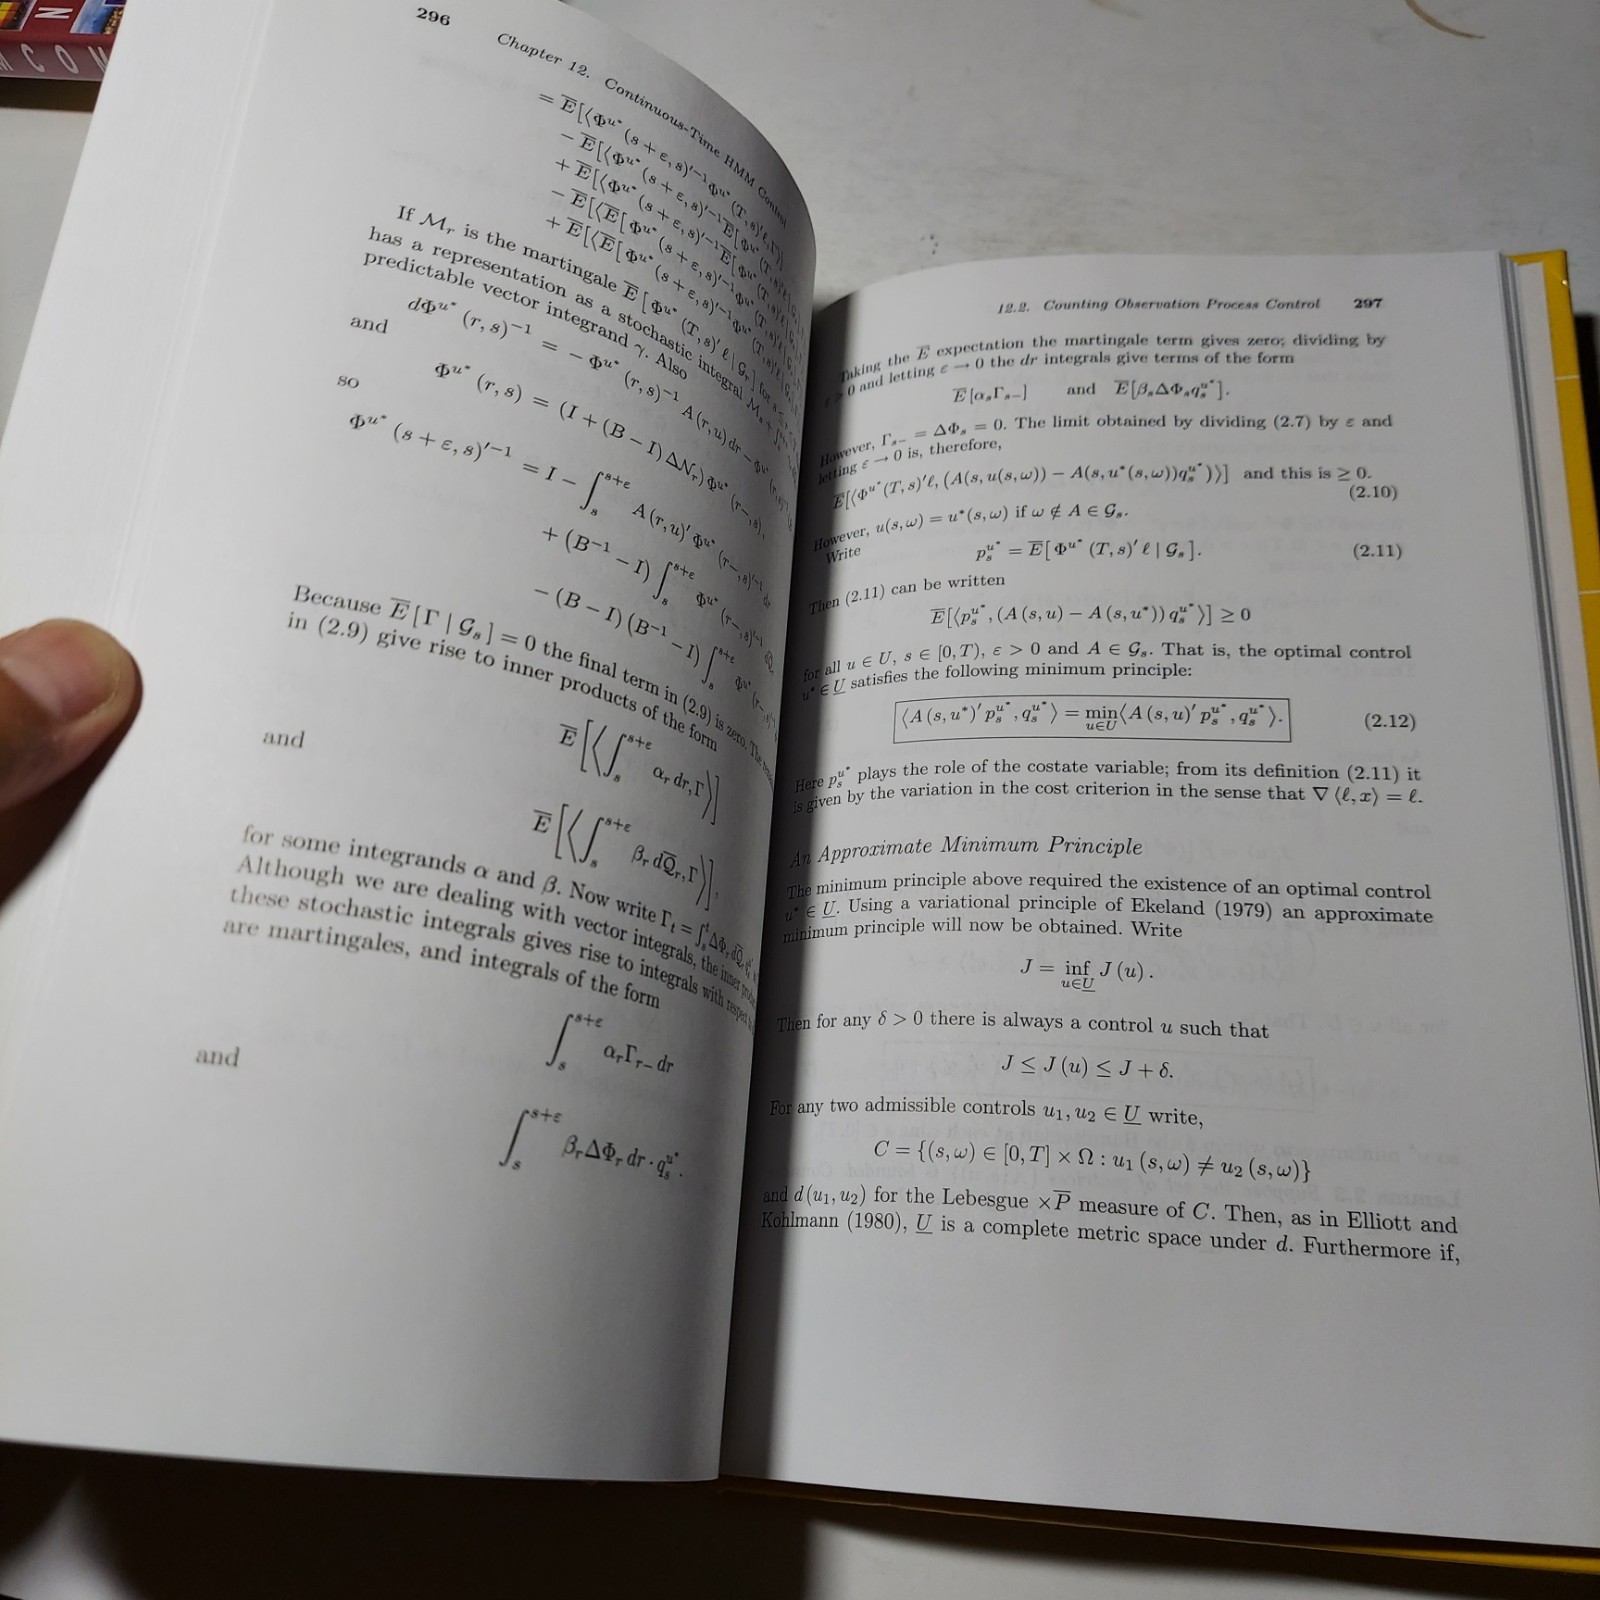 N
COM
296
Chapter 12. Continuous-Time HMM Control
= E̅[⟨Φ^{u*}(s + ε, s)'^{-1} Φ^{u*}(T, s)'ℓ, Γ⟩]
− E̅[⟨Φ^{u*}(s + ε, s)'^{-1} E̅[Φ^{u*}(T
+ E̅[⟨Φ^{u*}(s + ε, s)'^{-1} E̅[Φ^{u*}(T
− E̅[⟨E̅[Φ^{u*}(s + ε, s)'^{-1} Φ^{u*}(T, s)'ℓ |
+ E̅[⟨E̅[Φ^{u*}(s + ε, s)'^{-1} Φ^{u*}(T, s)'ℓ |
If M_r is the martingale E̅[Φ^{u*}(T, s)' ℓ | G_r] for
has a representation as a stochastic integral M_s +
predictable vector integrand γ. Also
dΦ^{u*}(r, s)^{-1} = −Φ^{u*}(r, s)^{-1} A(r, u) dr − Φ^{u*}
and
Φ^{u*}(r, s) = (I + (B − I) ΔN_r) Φ^{u*}(r−, s),
so
Φ^{u*}(s + ε, s)'^{-1} = I − ∫_s^{s+ε} A(r, u)' Φ^{u*}(r−, s)'^{-1} dr
+ (B^{-1} − I) ∫_s^{s+ε} Φ^{u*}(r−, s)'^{-1}
− (B − I)(B^{-1} − I) ∫_s^{s+ε} Φ^{u*}(r−, s)'^{-1}
Because E̅[Γ | G_s] = 0 the final term in (2.9) is zero. The
in (2.9) give rise to inner products of the form
E̅[⟨∫_s^{s+ε} α_r dr, Γ⟩]
and
E̅[⟨∫_s^{s+ε} β_r dQ̅_r, Γ⟩],
for some integrands α and β. Now write Γ_t = ∫_s^t ΔΦ_r dQ̅_r
Although we are dealing with vector integrals, the inner
these stochastic integrals gives rise to integrals with respect
are martingales, and integrals of the form
∫_s^{s+ε} α_r Γ_{r−} dr
and
∫_s^{s+ε} β_r ΔΦ_r dr · q_s^{u*}.
12.2. Counting Observation Process Control 297
Taking the E̅ expectation the martingale term gives zero; dividing by
ε > 0 and letting ε → 0 the dr integrals give terms of the form
E̅[α_s Γ_{s−}] and E̅[β_s ΔΦ_s q_s^{u*}].
However, Γ_{s−} = ΔΦ_s = 0. The limit obtained by dividing (2.7) by ε and
letting ε → 0 is, therefore,
E̅[⟨Φ^{u*}(T, s)'ℓ, (A(s, u(s, ω)) − A(s, u*(s, ω))q_s^{u*})⟩] and this is ≥ 0.
(2.10)
However, u(s, ω) = u*(s, ω) if ω ∉ A ∈ G_s.
Write
p_s^{u*} = E̅[Φ^{u*}(T, s)' ℓ | G_s]. (2.11)
Then (2.11) can be written
E̅[⟨p_s^{u*}, (A(s, u) − A(s, u*)) q_s^{u*}⟩] ≥ 0
for all u ∈ U, s ∈ [0, T), ε > 0 and A ∈ G_s. That is, the optimal control
u* ∈ U̲ satisfies the following minimum principle:
⟨A(s, u*)' p_s^{u*}, q_s^{u*}⟩ = min_{u∈U}⟨A(s, u)' p_s^{u*}, q_s^{u*}⟩. (2.12)
Here p_s^{u*} plays the role of the costate variable; from its definition (2.11) it
is given by the variation in the cost criterion in the sense that ∇⟨ℓ, x⟩ = ℓ.
An Approximate Minimum Principle
The minimum principle above required the existence of an optimal control
u* ∈ U̲. Using a variational principle of Ekeland (1979) an approximate
minimum principle will now be obtained. Write
J = inf_{u∈U̲} J(u).
Then for any δ > 0 there is always a control u such that
J ≤ J(u) ≤ J + δ.
For any two admissible controls u₁, u₂ ∈ U̲ write,
C = {(s, ω) ∈ [0, T] × Ω : u₁(s, ω) ≠ u₂(s, ω)}
and d(u₁, u₂) for the Lebesgue ×P̅ measure of C. Then, as in Elliott and
Kohlmann (1980), U̲ is a complete metric space under d. Furthermore if,